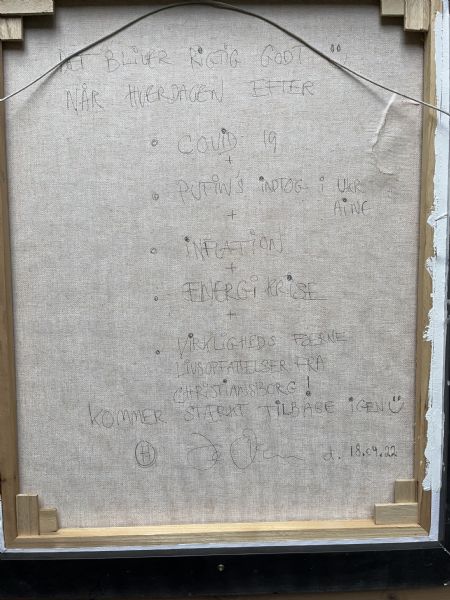 DET BLIVER RIGTIG GODT Ü
NÅR HVERDAGEN EFTER
• COVID 19
+
• PUTIN'S INDTOG I UKR
AINE
+
• INFLATION
+
• ENERGIKRISE
+
• VIRKLIGHEDS FJERNE
LIVSOPFATTELSER FRA
CHRISTIANSBORG!
KOMMER STÆRKT TILBAGE IGEN Ü
H d. 18.09.22